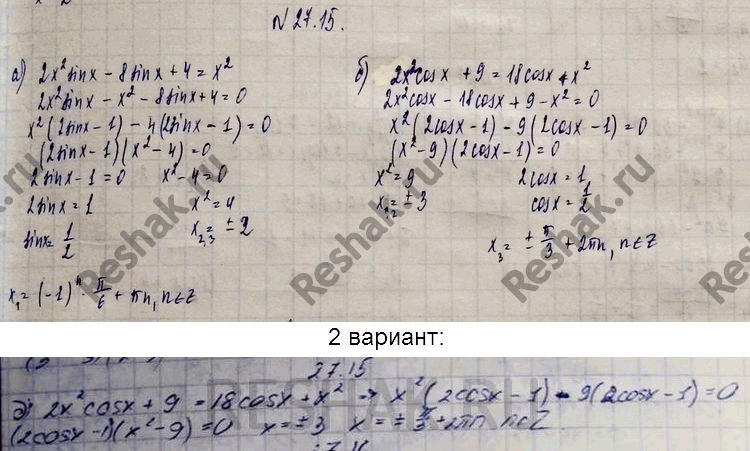 N 27.15.
а) 2x² sinx - 8sinx + 4 = x²
2x² sinx - x² - 8sinx + 4 = 0
x²(2sinx - 1) - 4(2sinx - 1) = 0
(2sinx - 1)(x² - 4) = 0
2sinx - 1 = 0 x² - 4 = 0
2sinx = 1 x² = 4
sinx = 1/2 x₂,₃ = ± 2
x₁ = (-1)ⁿ · π/6 + πn, n ∈ Z
б) 2x² cosx + 9 = 18cosx + x²
2x² cosx - 18cosx + 9 - x² = 0
x²(2cosx - 1) - 9(2cosx - 1) = 0
(x² - 9)(2cosx - 1) = 0
x² = 9 2cosx = 1
x₁,₂ = ± 3 cosx = 1/2
x₃ = ± π/3 + 2πn, n ∈ Z
Reshak.ru
Reshak.ru
Reshak.ru
2 вариант:
27.15
RESHAK.RU
2x² cosx + 9 = 18cosx + x² → x²(2cosx - 1) - 9(2cosx - 1) = 0
(2cosx - 1)(x² - 9) = 0 x = ± 3 x = ± π/3 + 2πn n ∈ Z